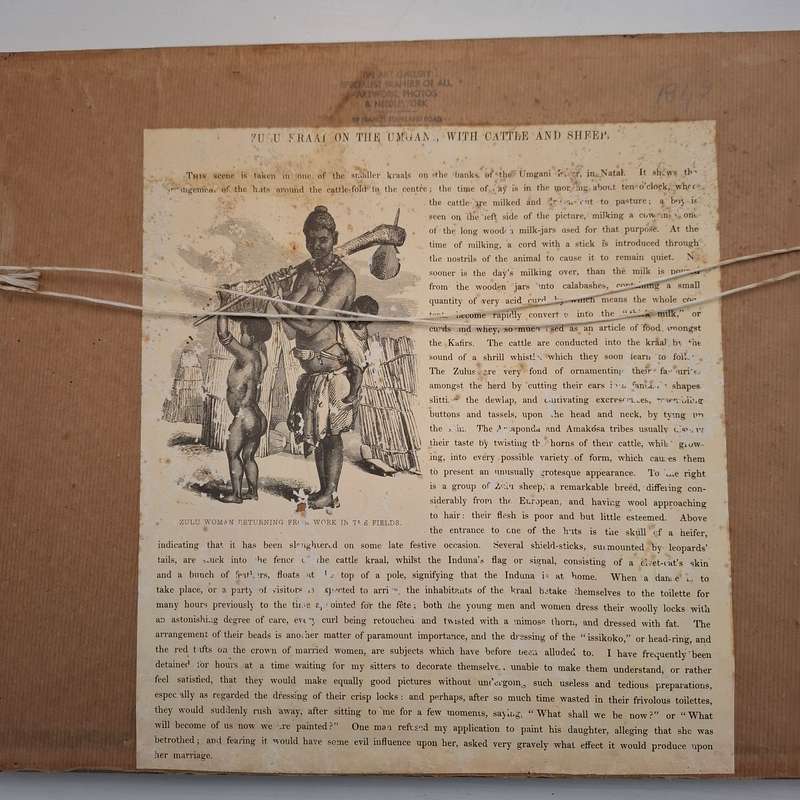 THE ART GALLERY
SPECIALIST FRAMERS OF ALL
ARTWORK, PHOTOS
& NEEDLEWORK
ROAD
ZULU KRAAL ON THE UMGANI, WITH CATTLE AND SHEEP.
THIS scene is taken in one of the smaller kraals on the banks of the Umgani River, in Natal. It shows the
arrangement of the huts around the cattle-fold in the centre; the time of day is in the morning about ten o'clock, when
the cattle are milked and sent to pasture; a boy is
seen on the left side of the picture, milking a cow in one
of the long wooden milk-jars used for that purpose. At the
time of milking, a cord with a stick is introduced through
the nostrils of the animal to cause it to remain quiet. No
sooner is the day's milking over, than the milk is poured
from the wooden jars into calabashes, containing a small
quantity of very acid curd, by which means the whole con-
tents become rapidly converted into the milk," or
curds and whey, so much used as an article of food amongst
the Kafirs. The cattle are conducted into the kraal by the
sound of a shrill whistle, which they soon learn to follow.
The Zulus are very fond of ornamenting their favourites
amongst the herd by cutting their ears into fantastic shapes
slitting the dewlap, and cultivating excrescences, resembling
buttons and tassels, upon the head and neck, by tying up
the skin. The Amaponda and Amakósa tribes usually display
their taste by twisting the horns of their cattle, while grow-
ing, into every possible variety of form, which causes them
to present an unusually grotesque appearance. To the right
is a group of Zulu sheep, a remarkable breed, differing con-
siderably from the European, and having wool approaching
to hair: their flesh is poor and but little esteemed. Above
the entrance to one of the huts is the skull of a heifer,
ZULU WOMAN RETURNING FROM WORK IN THE FIELDS.
indicating that it has been slaughtered on some late festive occasion. Several shield-sticks, surmounted by leopards'
tails, are stuck into the fence of the cattle kraal, whilst the Induna's flag or signal, consisting of a civet-cat's skin
and a bunch of feathers, floats at the top of a pole, signifying that the Induna is at home. When a dance is to
take place, or a party of visitors is expected to arrive, the inhabitants of the kraal betake themselves to the toilette for
many hours previously to the time appointed for the fête; both the young men and women dress their woolly locks with
an astonishing degree of care, every curl being retouched and twisted with a mimosa thorn, and dressed with fat. The
arrangement of their beads is another matter of paramount importance, and the dressing of the "issikoko," or head-ring, and
the red tufts on the crown of married women, are subjects which have before been alluded to. I have frequently been
detained for hours at a time waiting for my sitters to decorate themselves, unable to make them understand, or rather
feel satisfied, that they would make equally good pictures without undergoing such useless and tedious preparations,
especially as regarded the dressing of their crisp locks: and perhaps, after so much time wasted in their frivolous toilettes,
they would suddenly rush away, after sitting to me for a few moments, saying, "What shall we be now?" or "What
will become of us now we are painted?" One man refused my application to paint his daughter, alleging that she was
betrothed; and fearing it would have some evil influence upon her, asked very gravely what effect it would produce upon
her marriage.